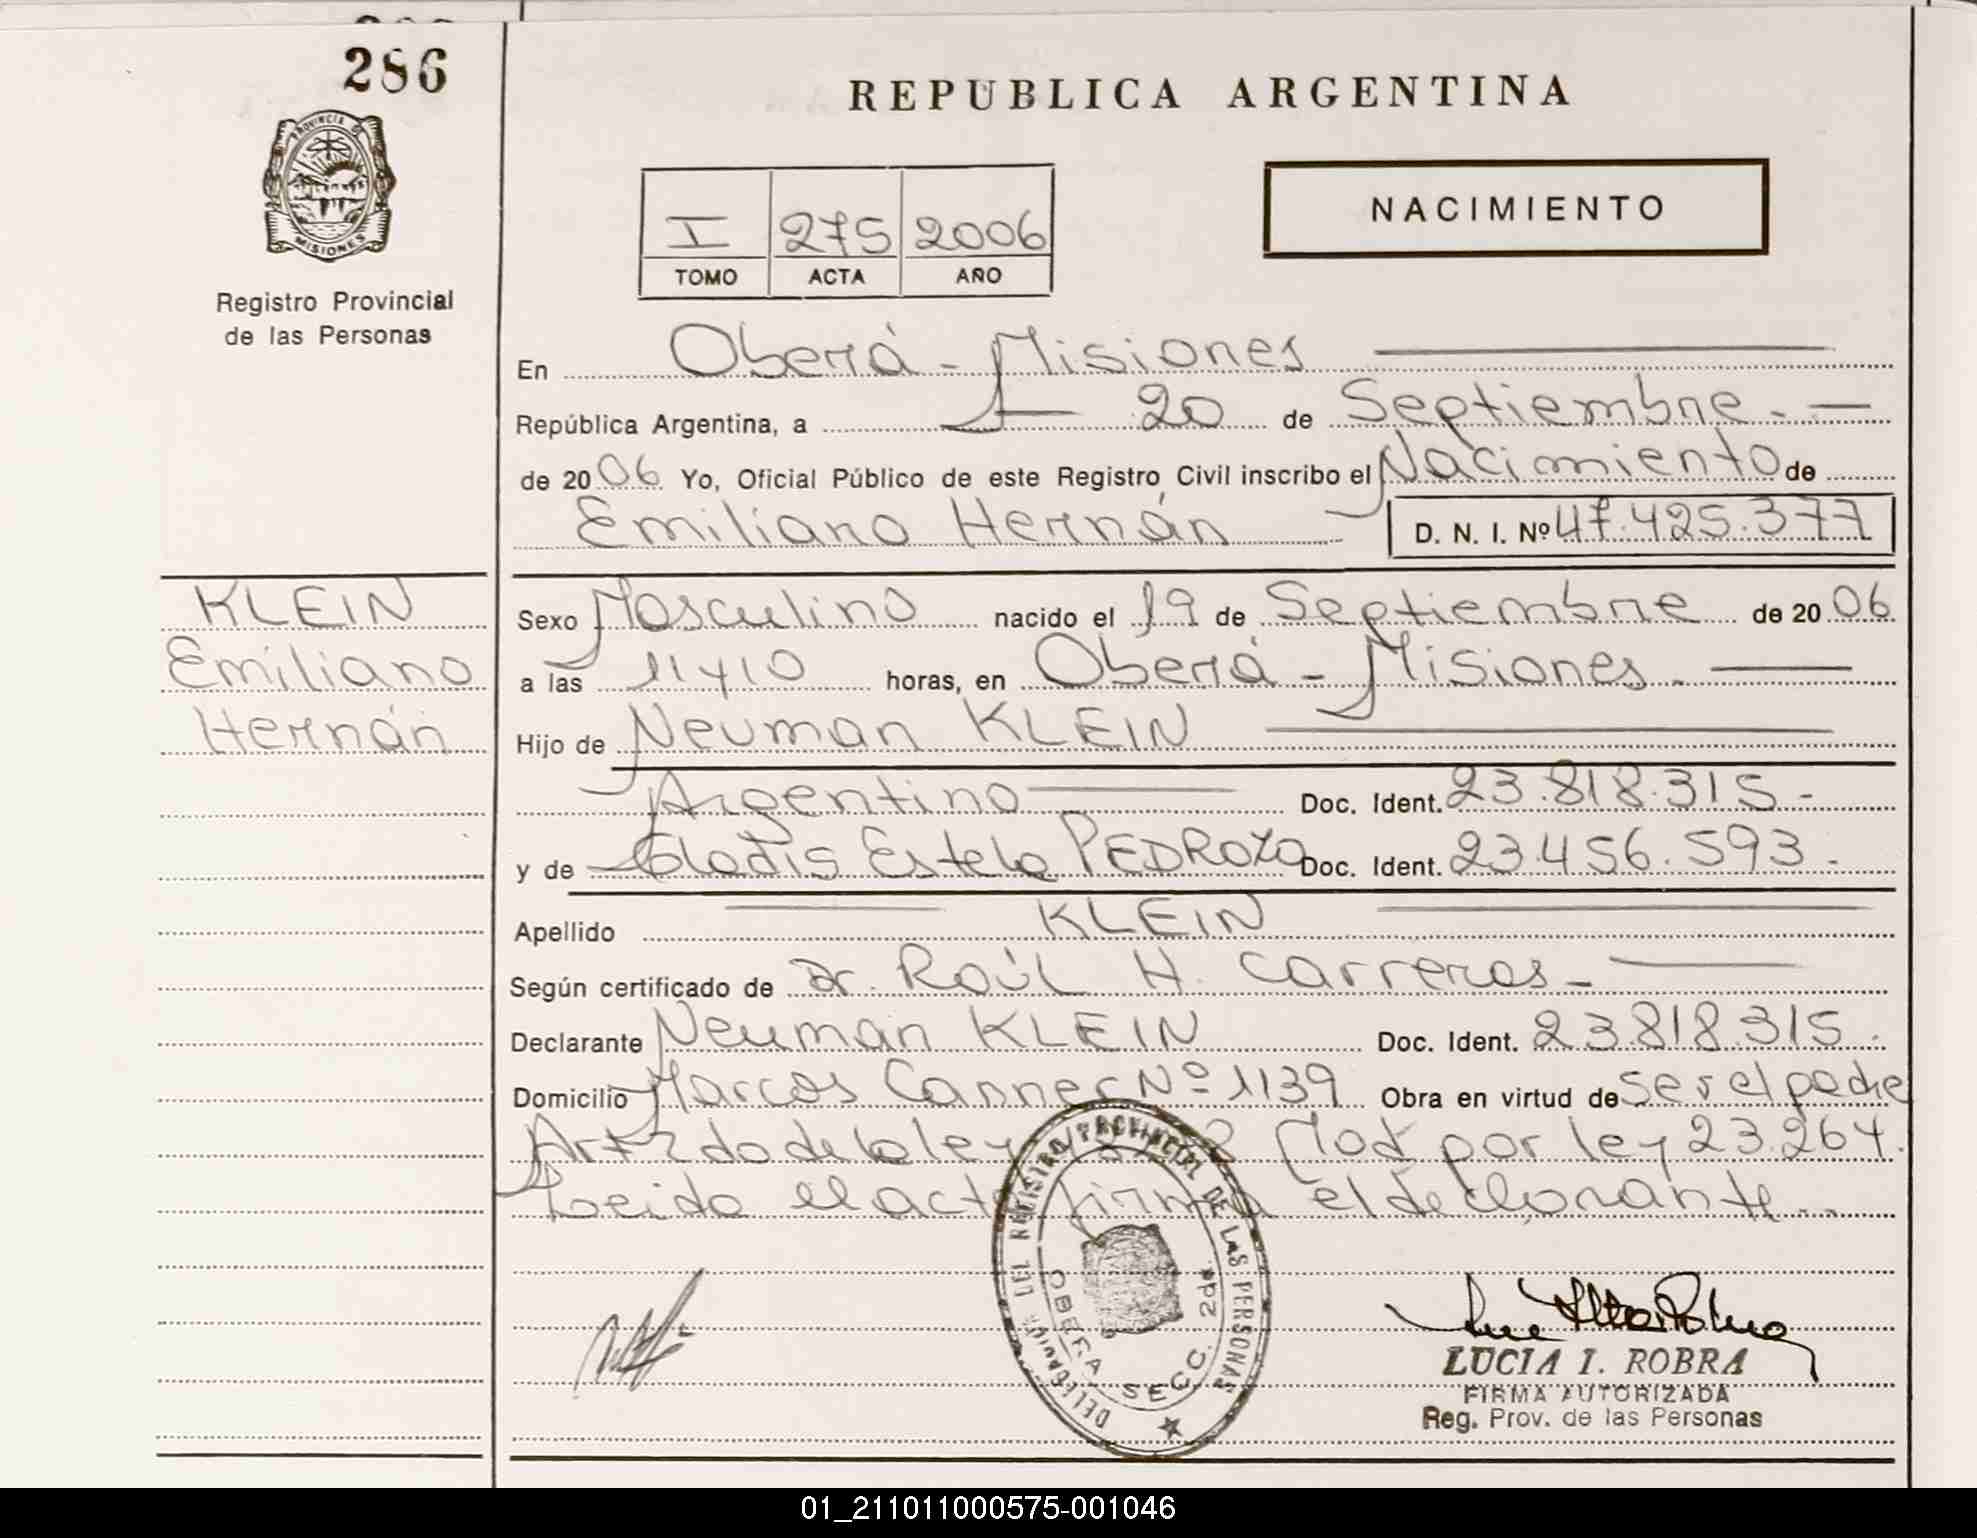 286
PROVINCIA DE
MISIONES
Registro Provincial
de las Personas
REPUBLICA ARGENTINA
I 275 2006
TOMO ACTA AÑO
NACIMIENTO
En Oberá - Misiones
República Argentina, a 20 de Septiembre. -
de 2006 Yo, Oficial Público de este Registro Civil inscribo el Nacimiento de
Emiliano Hernán D. N. I. Nº 47.425.377
KLEIN
Emiliano
Hernán
Sexo Masculino nacido el 19 de Septiembre de 2006
a las 11 y 10 horas, en Oberá - Misiones. -
Hijo de Neuman KLEIN
Argentino Doc. Ident. 23.818.315 -
y de Gladis Estela PEDROZO Doc. Ident. 23.456.593 -
Apellido KLEIN
Según certificado de Dr. Raúl H. Carreras -
Declarante Neuman KLEIN Doc. Ident. 23.818.315.
Domicilio Marcos Canner Nº 1139 Obra en virtud de ser el padre
Art 2do de la ley Mod por ley 23.264.
Leida el acta firma el declarante..
DELEGA DEL REGISTRO PROVINCIAL DE LAS PERSONAS
OBERA SECC. 2da
LUCIA I. ROBRA
FIRMA AUTORIZADA
Reg. Prov. de las Personas
01_211011000575-001046